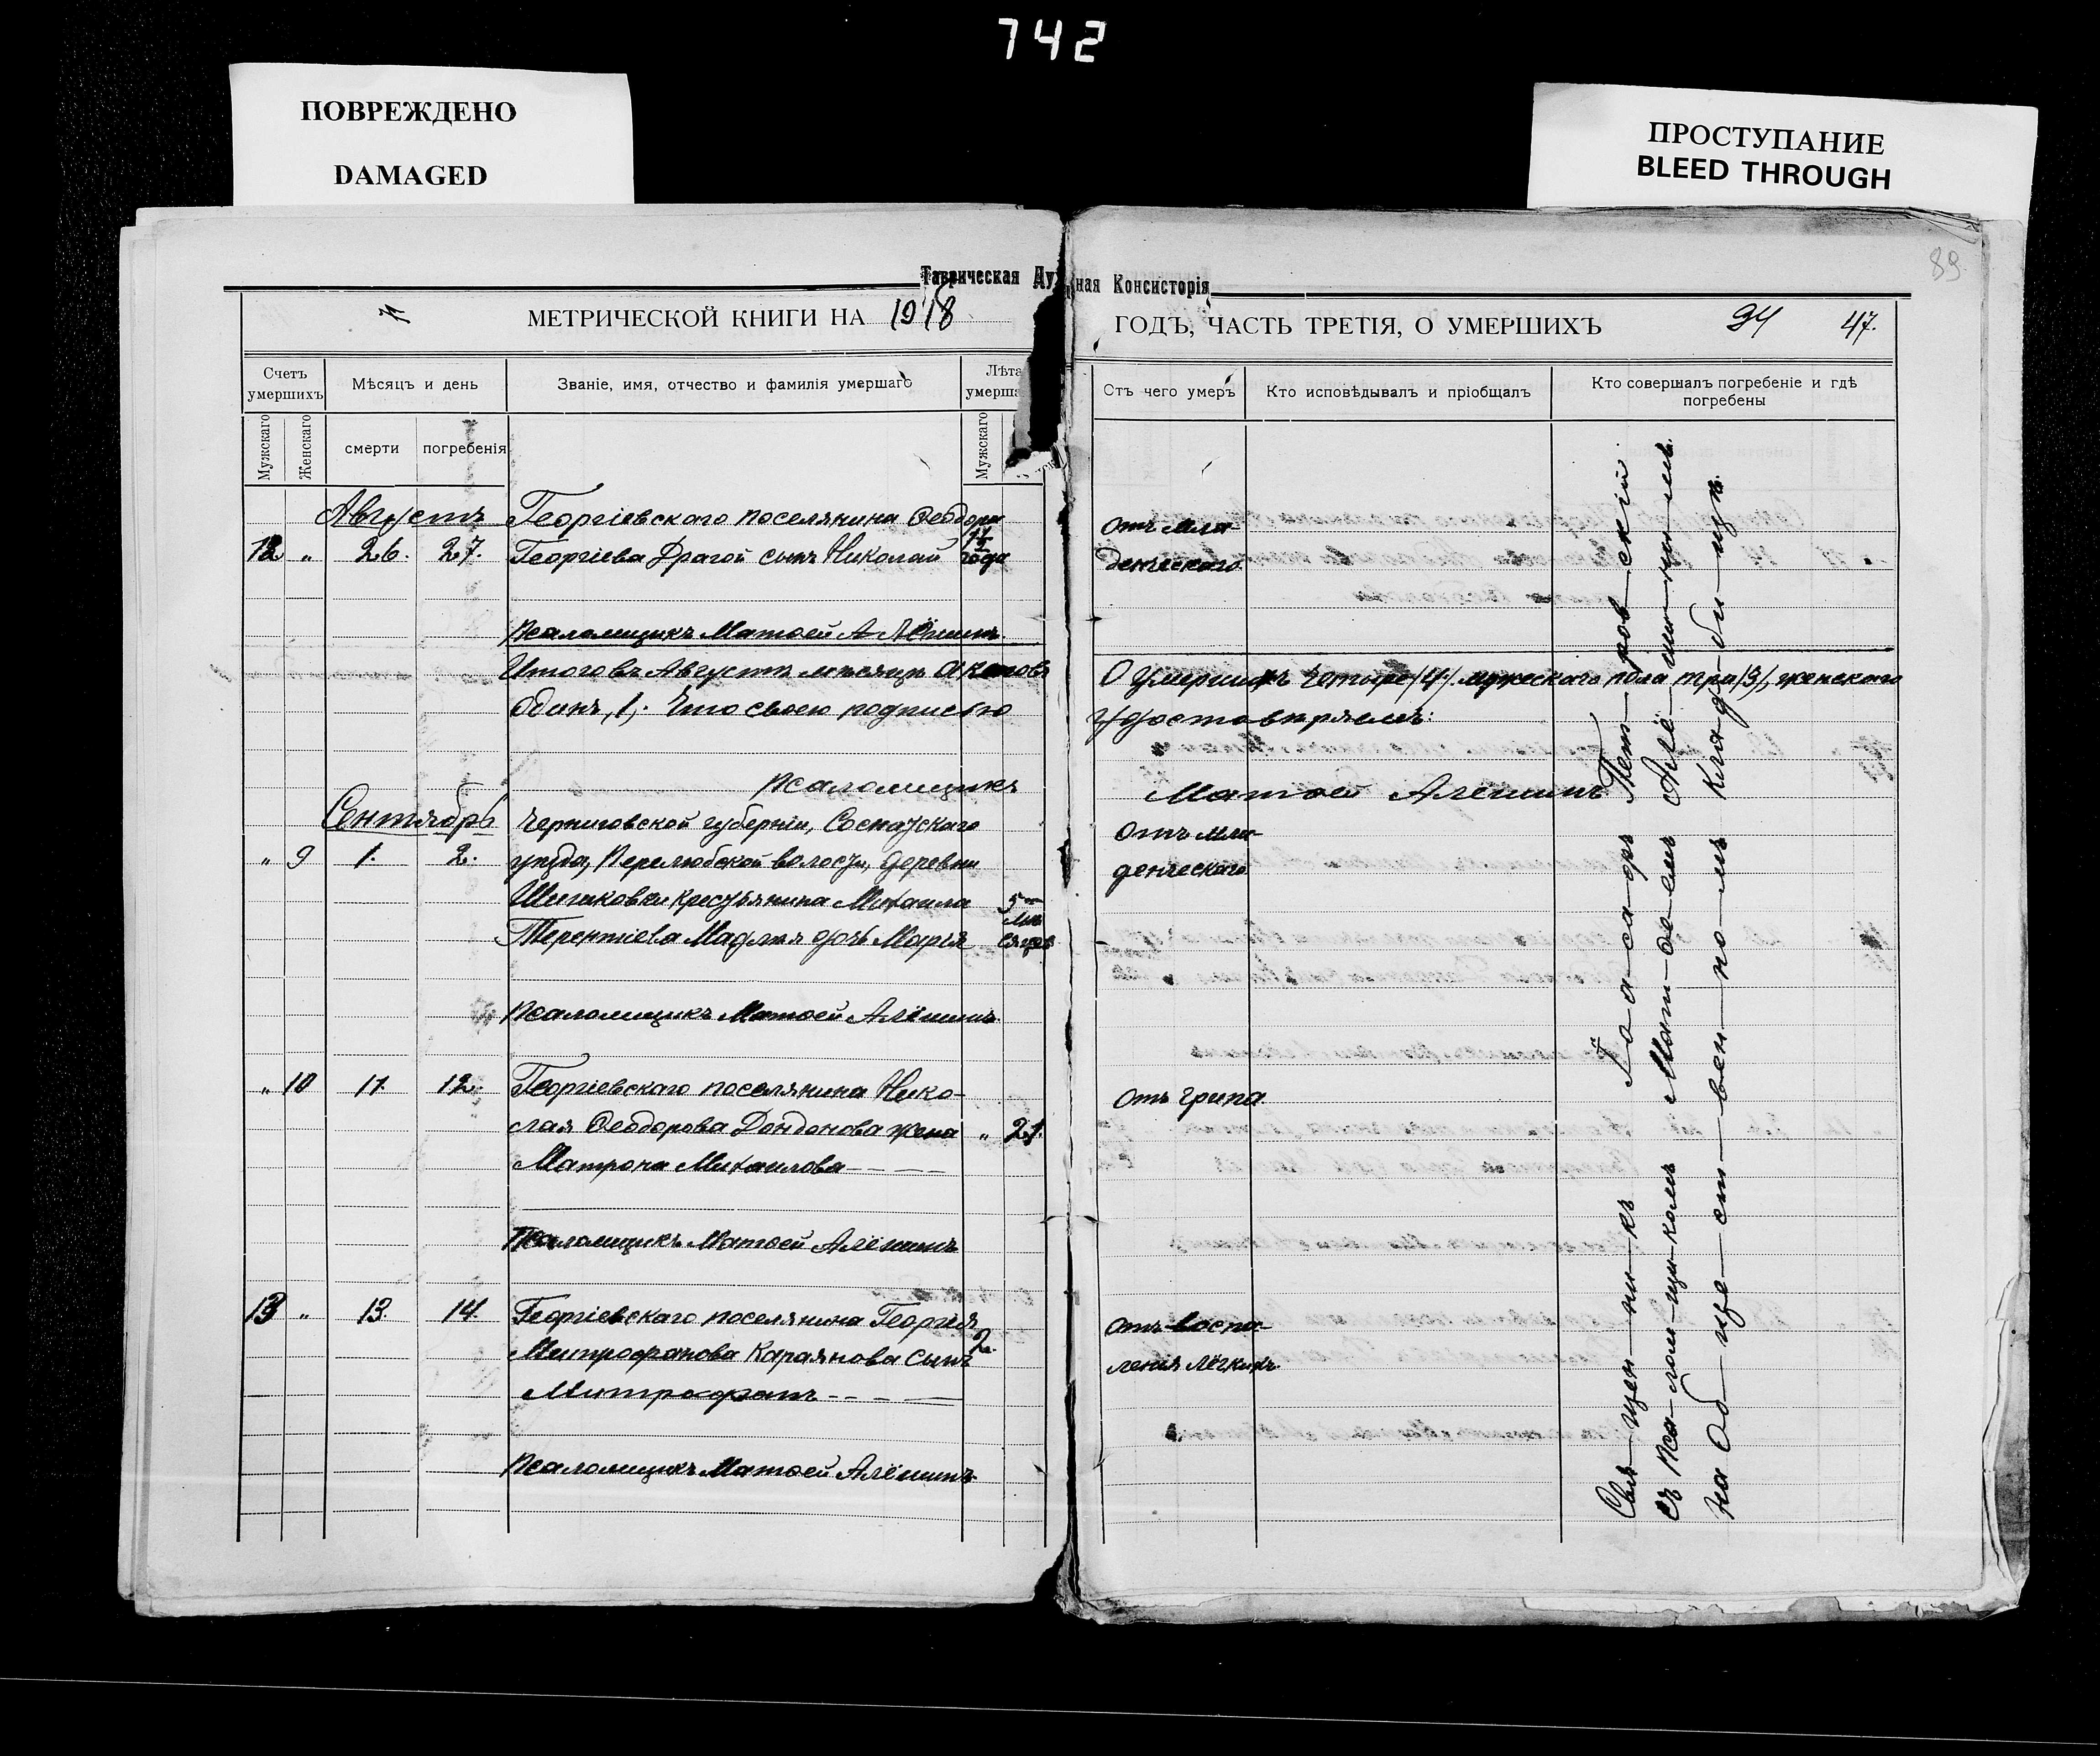 742
ПОВРЕЖДЕНО
DAMAGED
ПРОСТУПАНИЕ
BLEED THROUGH
89
Таврическая Духовная Консисторія
МЕТРИЧЕСКОЙ КНИГИ НА 1918
ГОДЪ, ЧАСТЬ ТРЕТІЯ, О УМЕРШИХЪ 94 47.
Счетъ умершихъ
Мѣсяцъ и день
Званіе, имя, отчество и фамилія умершаго
Лѣта умерша
Отъ чего умеръ
Кто исповѣдывалъ и пріобщалъ
Кто совершалъ погребеніе и гдѣ погребены
Мужскаго
Женскаго
смерти
погребенія
Мужскаго
Августъ Георгіевскаго поселянина Ѳеодора
12 " 26. 27. Георгіева Драгой сынъ Николай года
отъ мла-
денческаго
Псаломщикъ Матѳей Алёшинъ.
Итого въ Августѣ мѣсяцѣ актовъ
О умершихъ четыре /4/. мужескаго пола три /3/, женскаго
одинъ /1/. Что своею подписью
удостовѣряемъ:
Псаломщикъ
Матѳей Алёшинъ
Сентябрь Черниговской губерніи, Сосницкаго
" 9 1. 2. уѣзда, Перелюбской волости, деревни
Шишковки крестьянина Михаила 5
Терентіева Мадлия дочь Марія мѣсяцев
отъ мла-
денческаго
Псаломщикъ Матѳей Алёшинъ.
" 10 11. 12. Георгіевскаго поселянина Нико-
лая Ѳеодорова Дондонова жена " 21.
Матрона Михаилова
отъ грипа.
Псаломщикъ Матѳей Алёшинъ
13 " 13. 14. Георгіевскаго поселянина Георгія
Митрофанова Караянова сынъ 2.
Митрофанъ
отъ воспа-
ленія лёгкихъ.
Псаломщикъ Матѳей Алёшинъ.
Свя-щен-ни-къ Іоа-са-фъ Пет-ров-скій
съ Пса-лом-щи-комъ Мат-ѳеемъ Алё-ши-нымъ.
на Об-ще-ст-вен-но-мъ Клад-би-щѣ.